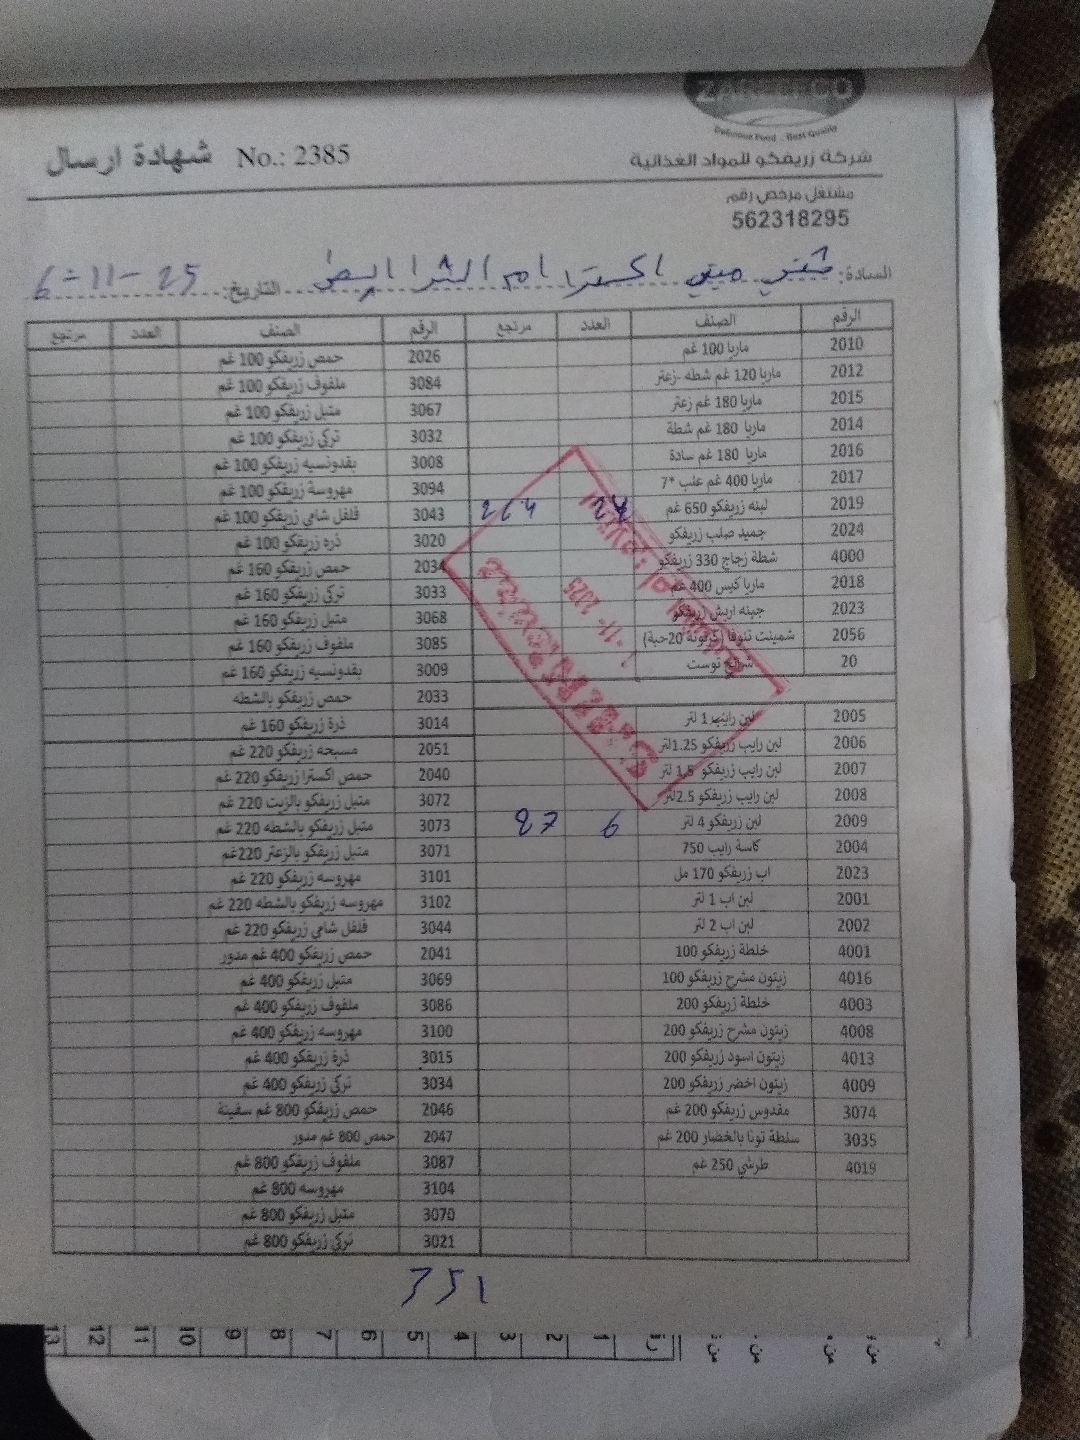 ZAREEFCO
Delicious Food - Best Quality
شركة زريفكو للمواد الغذائية
شهادة ارسال No.: 2385
مشتغل مرخص رقم
562318295
السادة: ميني اكسترا ام الشرايط التاريخ: 6-11-25
الرقم الصنف العدد مرتجع الرقم الصنف العدد مرتجع
2010 ماريا 100 غم 2026 حمص زريفكو 100 غم
2012 ماريا 120 غم شطه -زعتر 3084 ملفوف زريفكو 100 غم
2015 ماريا 180 غم زعتر 3067 متبل زريفكو 100 غم
2014 ماريا 180 غم شطة 3032 تركي زريفكو 100 غم
2016 ماريا 180 غم سادة 3008 بقدونسيه زريفكو 100 غم
2017 ماريا 400 غم علب *7 3094 مهروسة زريفكو 100 غم
2019 لبنه زريفكو 650 غم 24 264 3043 فلفل شامي زريفكو 100 غم
2024 جميد صلب زريفكو 3020 ذره زريفكو 100 غم
4000 شطة زجاج 330 زريفكو 2034 حمص زريفكو 160 غم
2018 ماريا كيس 400 غم 3033 تركي زريفكو 160 غم
2023 جبنه اريش زريفكو 3068 متبل زريفكو 160 غم
2056 شمينت تنوفا (كرتونة 20حبة) 3085 ملفوف زريفكو 160 غم
20 شرائح توست 3009 بقدونسيه زريفكو 160 غم
2033 حمص زريفكو بالشطه
2005 لبن رايب 1 لتر 3014 ذرة زريفكو 160 غم
2006 لبن رايب زريفكو 1.25لتر 2051 مسبحه زريفكو 220 غم
2007 لبن رايب زريفكو 1.5 لتر 2040 حمص اكسترا زريفكو 220 غم
2008 لبن رايب زريفكو 2.5لتر 3072 متبل زريفكو بالزيت 220 غم
2009 لبن زريفكو 4 لتر 6 87 3073 متبل زريفكو بالشطه 220 غم
2004 كاسة رايب 750 3071 متبل زريفكو بالزعتر 220غم
2023 اب زريفكو 170 مل 3101 مهروسه زريفكو 220 غم
2001 لبن اب 1 لتر 3102 مهروسه زريفكو بالشطه 220 غم
2002 لبن اب 2 لتر 3044 فلفل شامي زريفكو 220 غم
4001 خلطة زريفكو 100 2041 حمص زريفكو 400 غم مدور
4016 زيتون مشرح زريفكو 100 3069 متبل زريفكو 400 غم
4003 خلطة زريفكو 200 3086 ملفوف زريفكو 400 غم
4008 زيتون مشرح زريفكو 200 3100 مهروسه زريفكو 400 غم
4013 زيتون اسود زريفكو 200 3015 ذرة زريفكو 400 غم
4009 زيتون اخضر زريفكو 200 3034 تركي زريفكو 400 غم
3074 مقدوس زريفكو 200 غم 2046 حمص زريفكو 800 غم سفينة
3035 سلطة تونا بالخضار 200 غم 2047 حمص 800 غم مدور
4019 طرشي 250 غم 3087 ملفوف زريفكو 800 غم
3104 مهروسه 800 غم
3070 متبل زريفكو 800 غم
3021 تركي زريفكو 800 غم
351
1 2 3 4 5 6 7 8 9 10 11 12 13